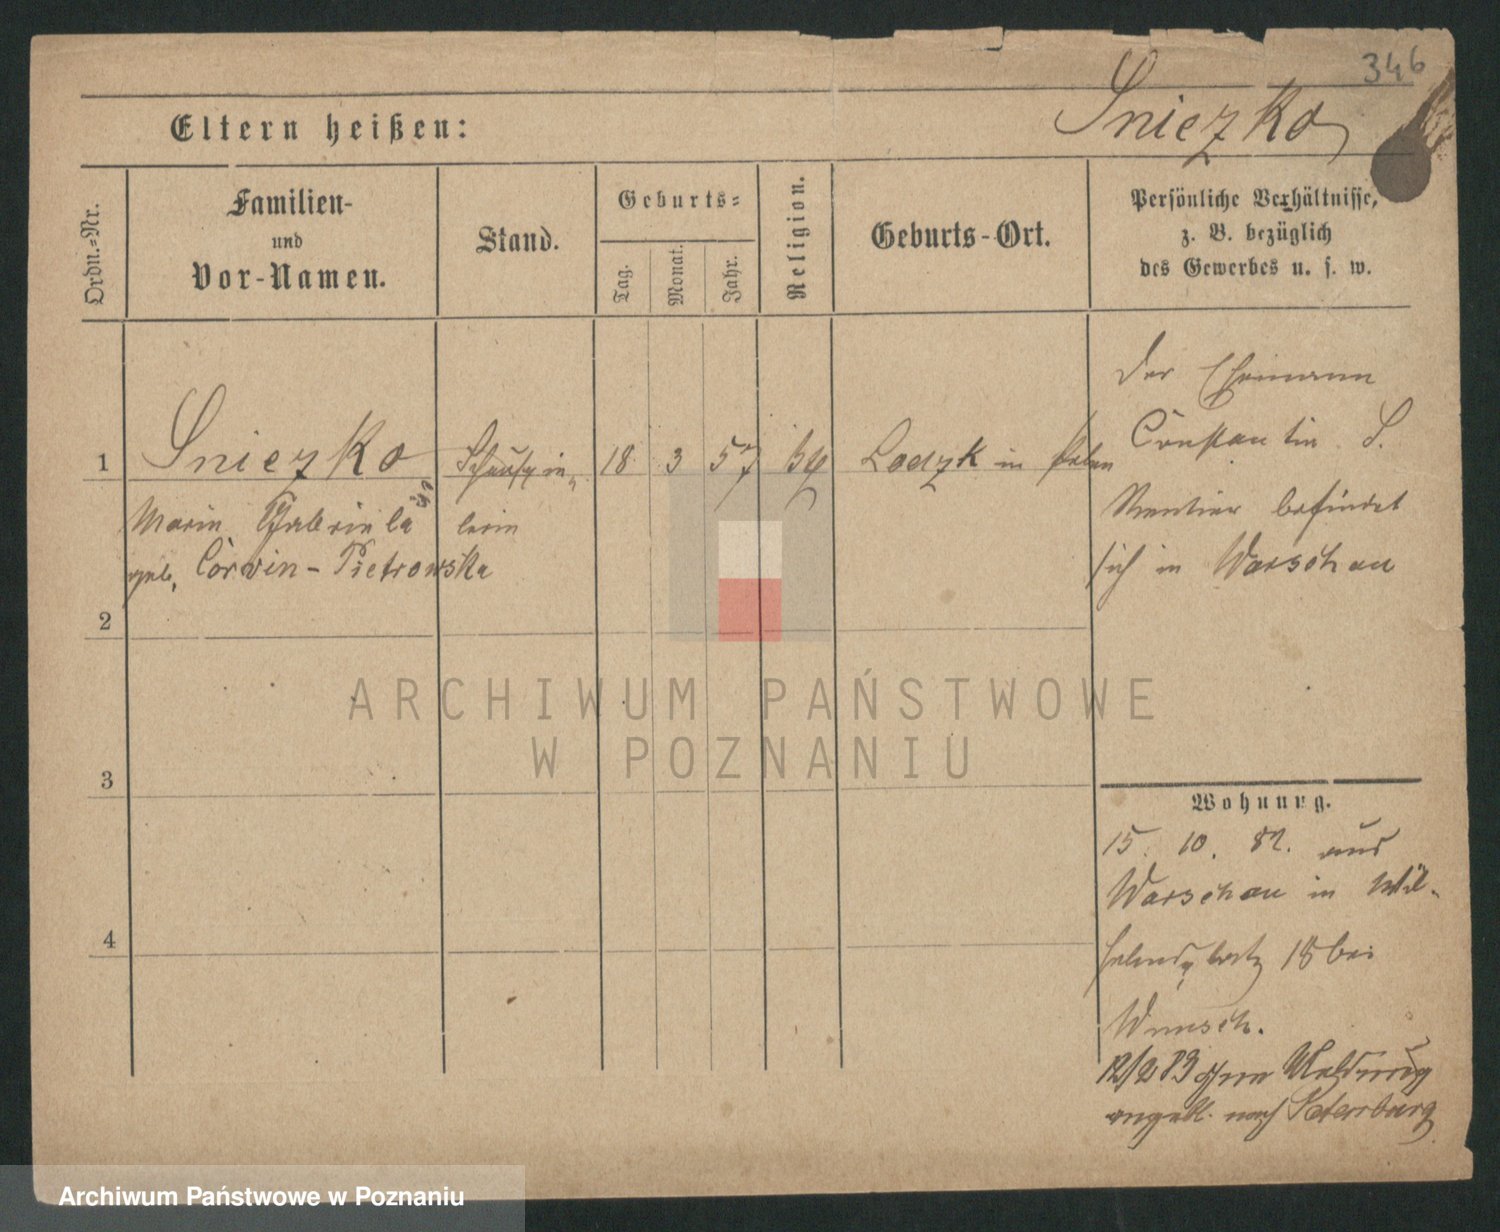 346
Sniezko
Eltern heißen:
Ordn.=Nr.
Familien-
und
Vor-Namen.
Stand.
Geburts=
Tag.
Monat.
Jahr.
Religion.
Geburts-Ort.
Persönliche Verhältnisse,
z. B. bezüglich
des Gewerbes u. s. w.
1
Sniezko
Marie Gabriela
geb. Corwin-Pietrowska
Schauspie-
lerin
18 3 57
Lodzk in Polen
Der Ehemann
Constantin S.
Rentier befindet
sich in Warschau
2
3
4
Wohnung.
15. 10. 82. aus
Warschau in Wil-
helmsplatz 18 bei
Wunsch.
12/2 83 ohne Meldung
angebl. nach Petersburg
ARCHIWUM PAŃSTWOWE
W POZNANIU
Archiwum Państwowe w Poznaniu